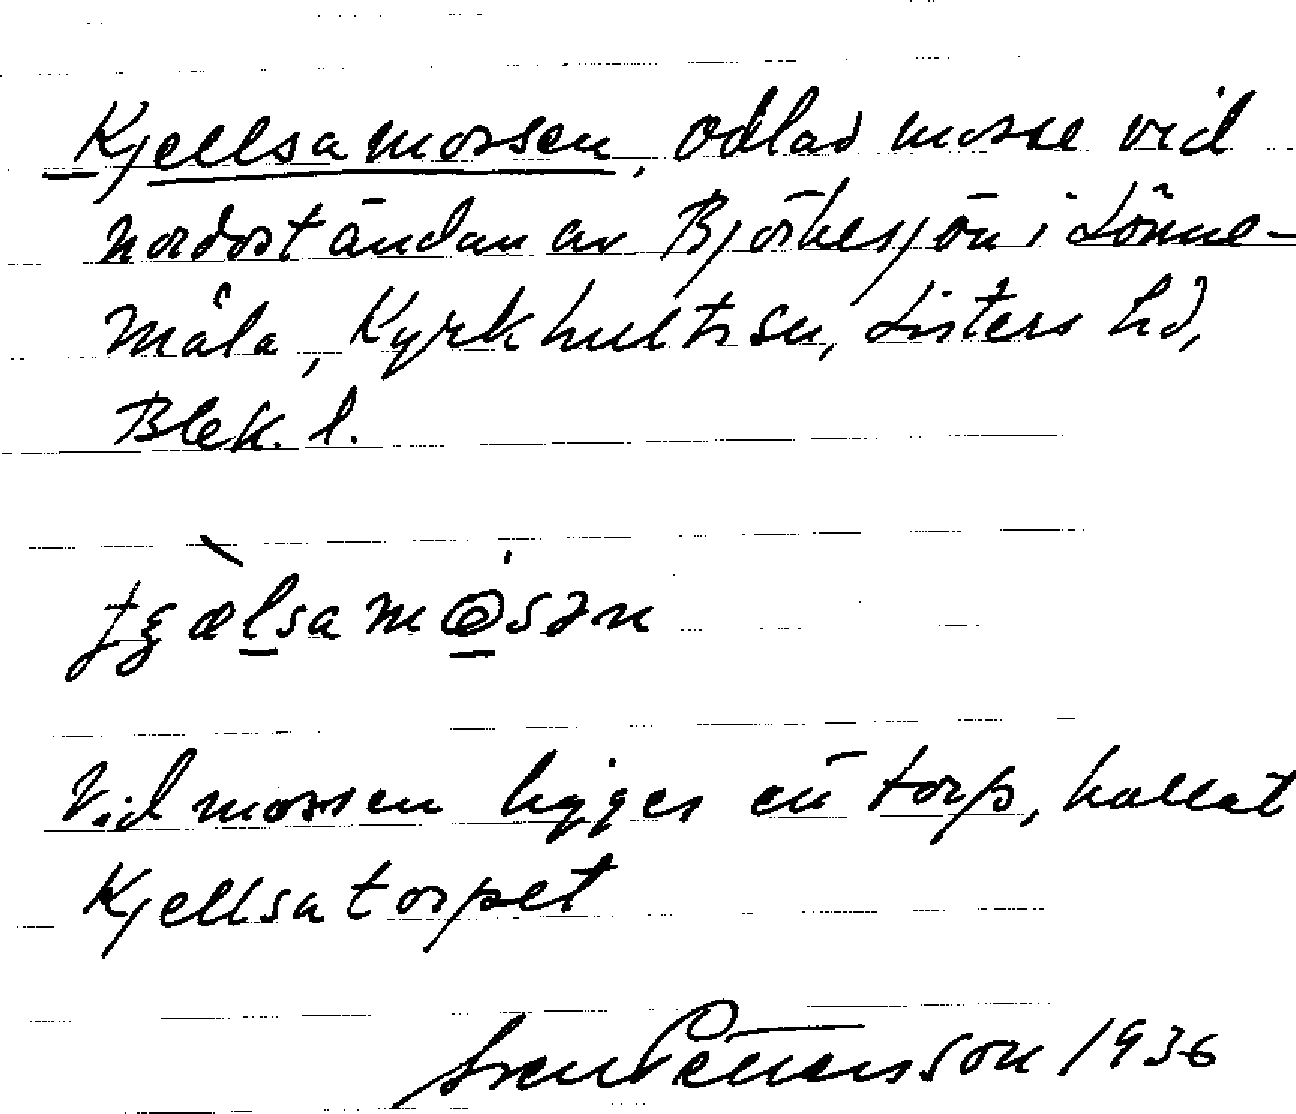 Kjellsamossen, odlad mosse vid
nordoständan av Björkesjön i Lönne-
måla, Kyrkhults sn, Listers hd,
Blek. l.
Vid mossen ligger ett torp, kallat
Kjellsatorpet
Sven Pettersson 1936